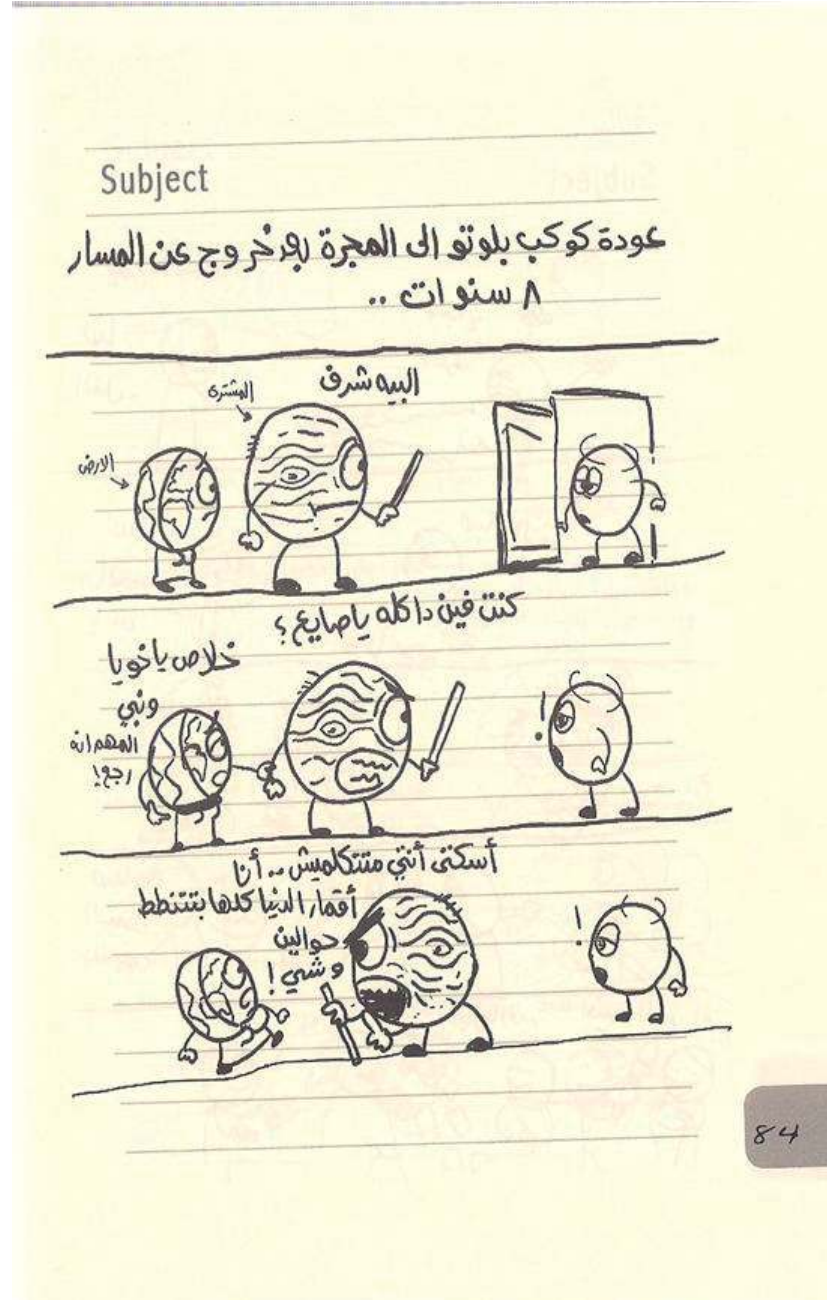 Subject
عودة كوكب بلوتو الى المجرة بعد خروج عن المسار
٨ سنوات ..
البيه شرف
المشترى
الارض
كنت فين دا كله يا صايع ؟
خلاص يا خويا
ونبي
المهم انه
رجع !
أسكتى أنتي متتكلميش .. أنا
أقمار الدنيا كلها بتتنطط
حوالين
وشي !
84